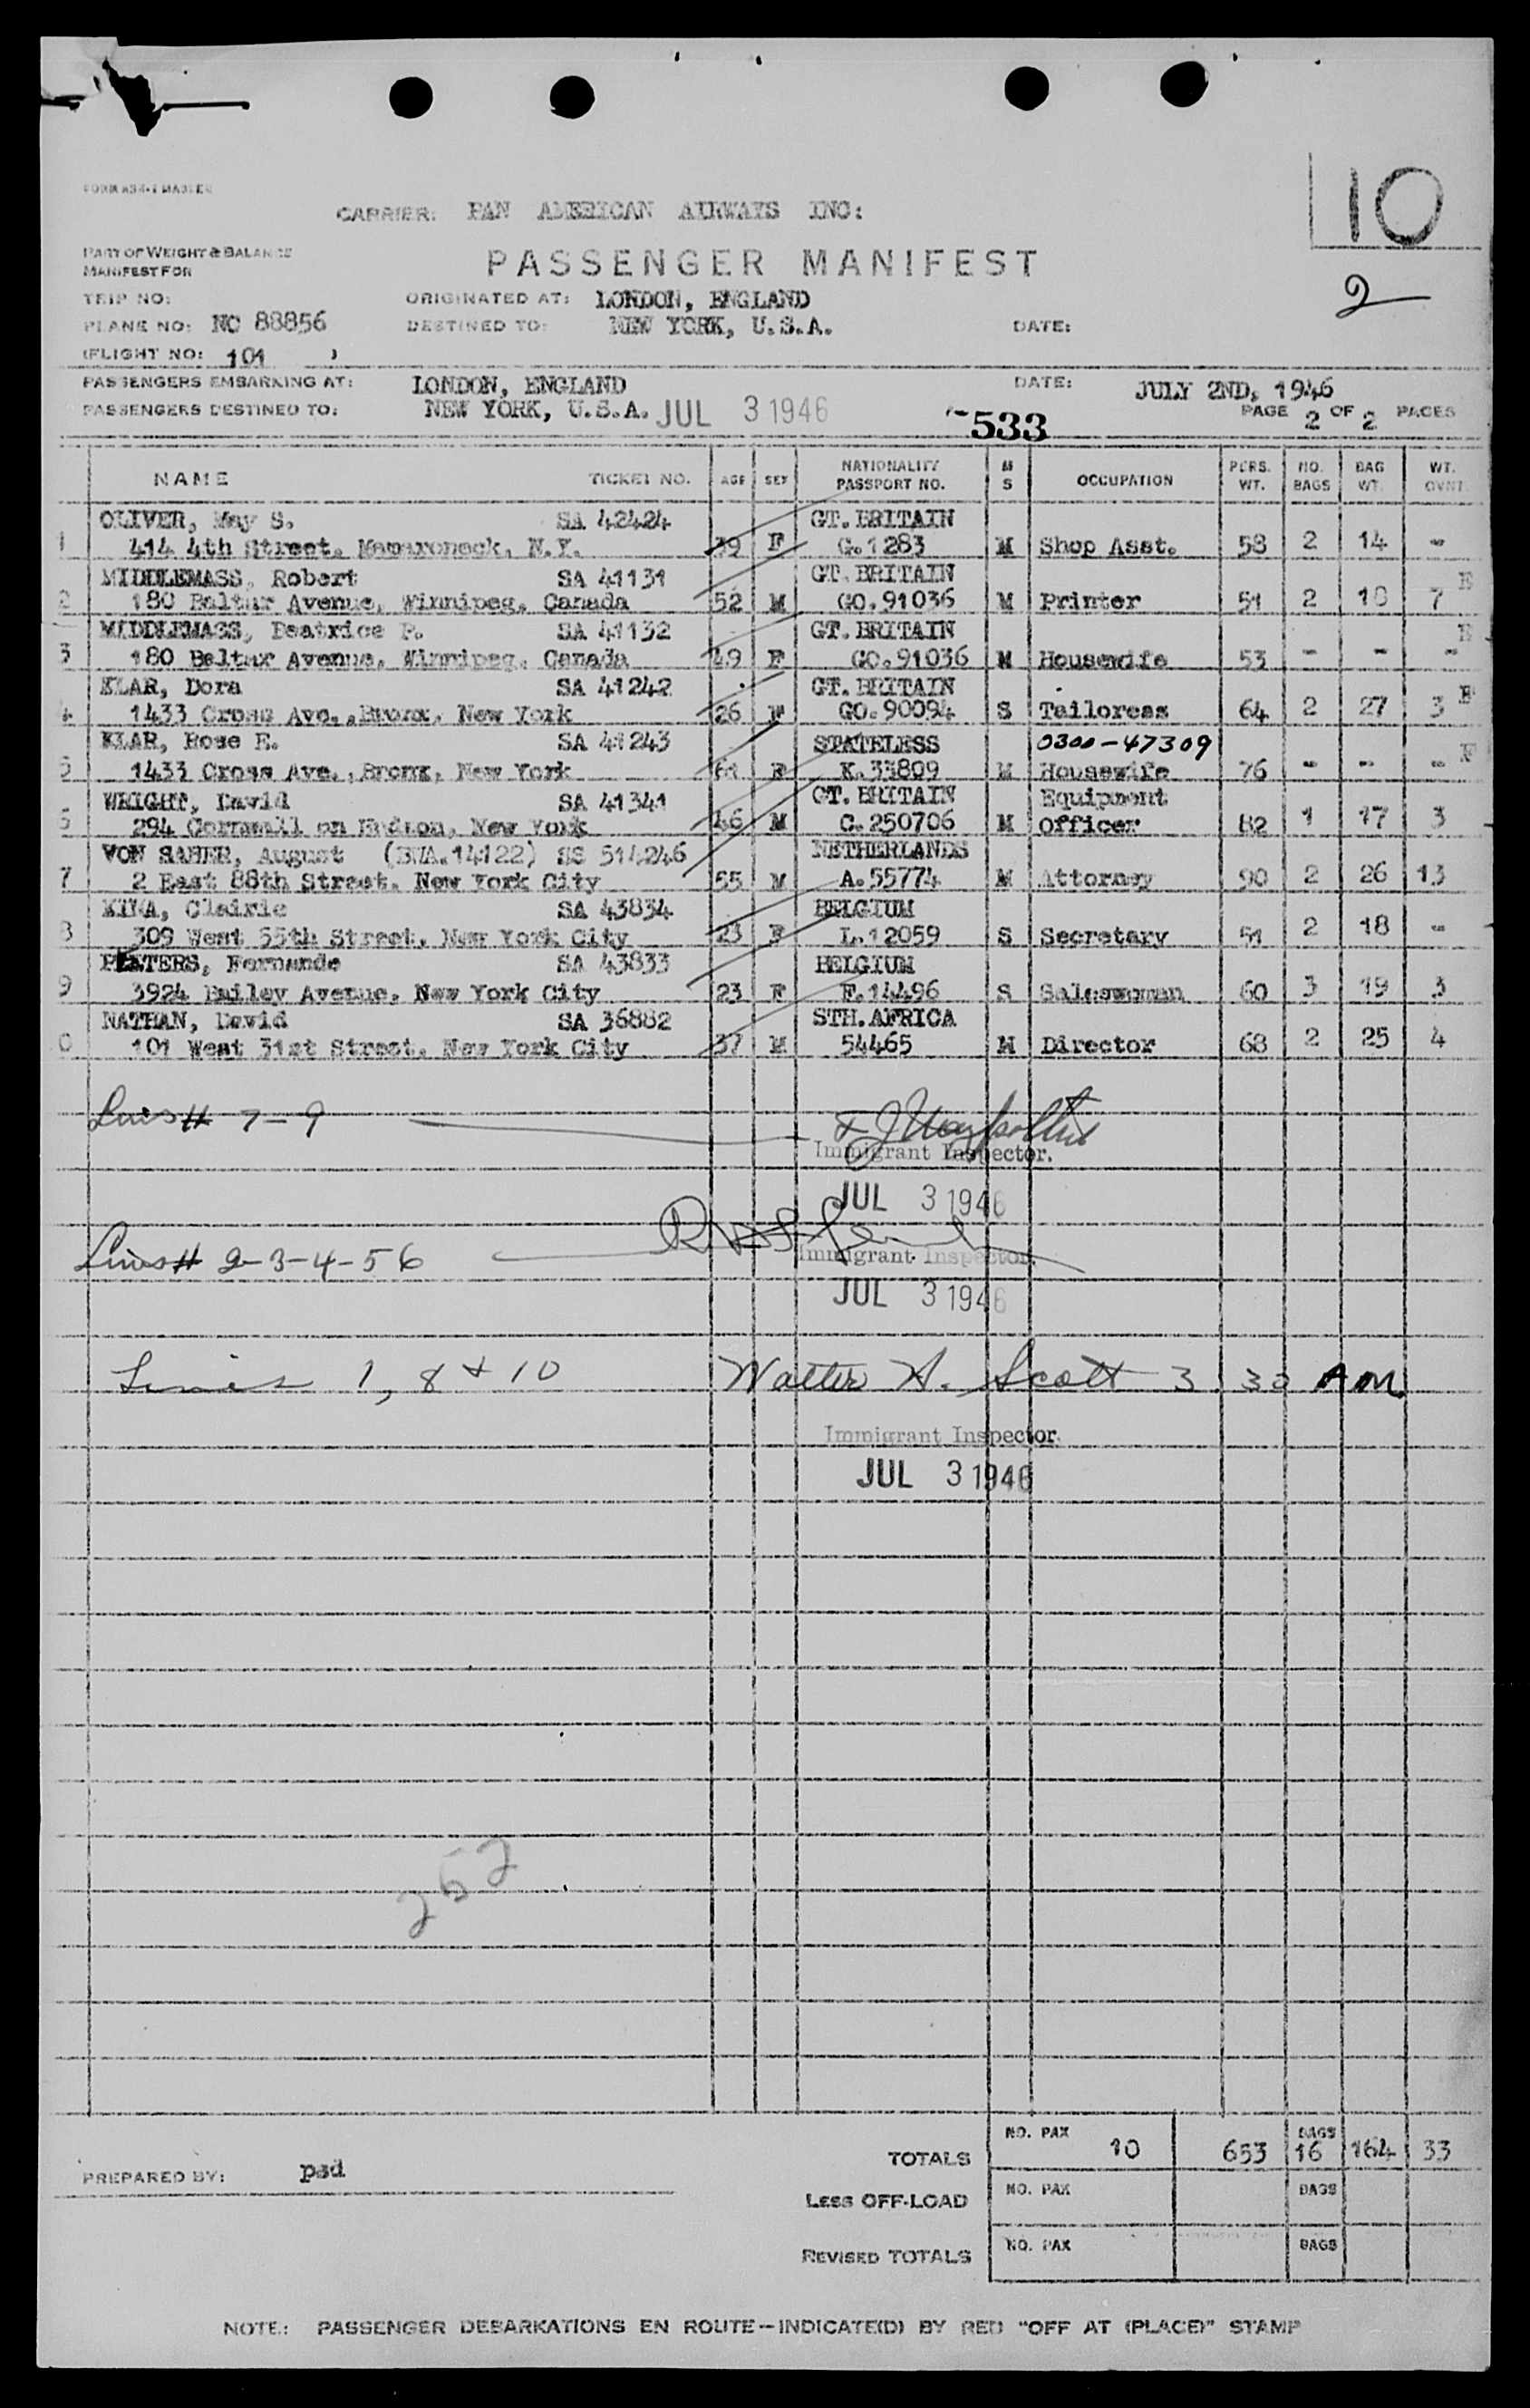 FORM AS4-1 MASTER
10
CARRIER: PAN AMERICAN AIRWAYS INC:
PART OF WEIGHT & BALANCE
MANIFEST FOR
PASSENGER MANIFEST
2
TRIP NO: ORIGINATED AT: LONDON, ENGLAND
PLANE NO: NC 88856 DESTINED TO: NEW YORK, U.S.A. DATE:
(FLIGHT NO: 101 )
PASSENGERS EMBARKING AT: LONDON, ENGLAND DATE: JULY 2ND, 1946
PASSENGERS DESTINED TO: NEW YORK, U.S.A. JUL 3 1946 533 PAGE 2 OF 2 PAGES
NAME TICKET NO. AGE SEX NATIONALITY PASSPORT NO. M S OCCUPATION PERS. WT. NO. BAGS BAG WT. WT. OVNT.
OLIVER, May S. SA 42424 GT. BRITAIN
1 414 4th Street, Mamaroneck, N.Y. 39 F G.1283 M Shop Asst. 58 2 14 -
MIDDLEMASS, Robert SA 41131 GT. BRITAIN E
2 180 Baltur Avenue, Winnipeg, Canada 52 M GO.91036 M Printer 51 2 18 7
MIDDLEMASS, Beatrice P. SA 41132 GT. BRITAIN E
3 180 Beltur Avenue, Winnipeg, Canada 49 F GO.91036 M Housewife 53 - - -
KLAR, Dora SA 41242 GT. BRITAIN
4 1433 Cross Ave., Bronx, New York 26 F GO.90094 S Tailoress 64 2 27 3
KLAR, Rose E. SA 41243 STATELESS 0300-47309
5 1433 Cross Ave., Bronx, New York 61 F K.33809 M Housewife 76 - - -
WRIGHT, David SA 41341 GT. BRITAIN Equipment
6 294 Cornwall on Hudson, New York 46 M C.250706 M Officer 82 1 17 3
VON SAHER, August (BWA.14122) SS 514246 NETHERLANDS
7 2 East 88th Street, New York City 55 M A.55774 M Attorney 90 2 26 13
Clairie SA 43834 BELGIUM
8 309 West 55th Street, New York City 23 F L.12059 S Secretary 51 2 18 -
PEATERS, Fernande SA 43833 BELGIUM
9 3924 Bailey Avenue, New York City 23 F F.14496 S Saleswoman 60 3 19 3
NATHAN, David SA 36882 STH. AFRICA
0 101 West 31st Street, New York City 37 M 54465 M Director 68 2 25 4
Lines# 7-9
Immigrant Inspector.
JUL 3 1946
Lines# 2-3-4-5 6
Immigrant Inspector.
JUL 3 1946
Lines 1, 8 + 10 Walter A. Scott 3 30 AM.
Immigrant Inspector.
JUL 3 1946
252
TOTALS NO. PAX 10 653 BAGS 16 164 33
PREPARED BY: psd
LESS OFF-LOAD NO. PAX BAGS
REVISED TOTALS NO. PAX BAGS
NOTE: PASSENGER DEBARKATIONS EN ROUTE—INDICATE(D) BY RED "OFF AT (PLACE)" STAMP